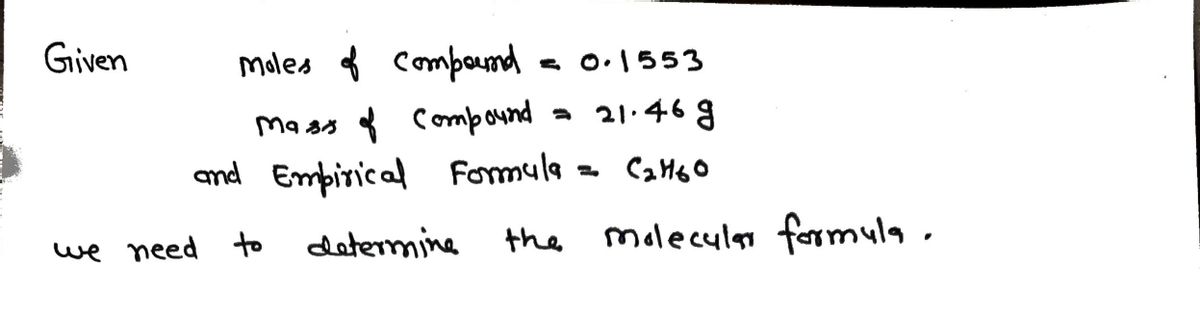 Given moles of compound = 0.1553
Mass of Compound = 21.46 g
and Empirical Formula = C2H6O
we need to determine the molecular formula.